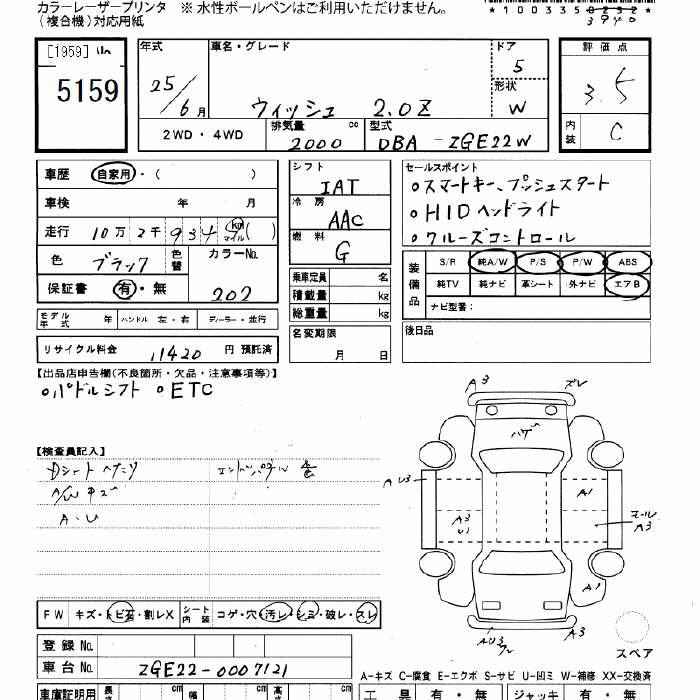 カラーレーザープリンタ ※ 水性ボールペンはご利用いただけません。
(複合機)対応用紙
[1959]
5159
年式
25/6月
車名・グレード
ウィッシュ 2.0Z
ドア
5
形状
W
評価点
3.5
内装
C
2WD・4WD
排気量
2000
cc
型式
DBA-ZGE22W
車歴
自家用・( )
車検
年 月
走行
10万2千934
km
マイル
( )
色
ブラック
色替
カラーNo.
202
保証書
有・無
シフト
IAT
冷房
AAC
燃料
G
乗車定員 名
積載量 kg
総重量 kg
名変期限
月 日
セールスポイント
○スマートキー、プッシュスタート
○HIDヘッドライト
○クルーズコントロール
装備品
S/R 純A/W P/S P/W ABS
純TV 純ナビ 革シート 外ナビ エアB
ナビ型番:
後日品
モデル年式 年 ハンドル 左・右 ディーラー・並行
リサイクル料金 11420 円 預託済
【出品店申告欄(不良箇所・欠品・注意事項等)】
○パドルシフト ○ETC
【検査員記入】
A・U
A3
ズレ
ハゲ
U3
A1
A3
U1
A3
A1
A3
スペア
FW キズ・トビ石・割レX シート内装 コゲ・穴・汚レ・シミ・破レ・スレ
登録No.
車台No. ZGE22-0007121
A-キズ C-腐食 E-エクボ S-サビ U-凹ミ W-補修 XX-交換済
車庫証明用
長さ
cm
幅
cm
高さ
cm
工具 有・無 ジャッキ 有・無